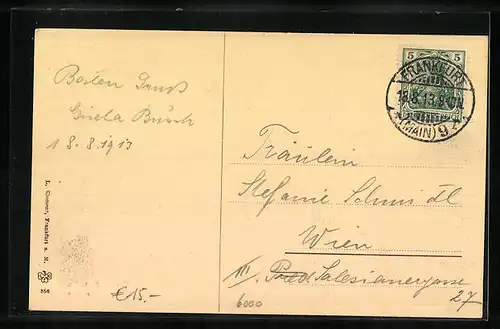 Besten Gruß
Gisela Busch
18.8.1913
L. Klement, Frankfurt a. M.
554
€ 15.-
5 5
FRANKFURT
18.8.13.
(MAIN) 9
Fräulein
Stefanie Schmidl
Wien
III. Salesianergasse
27
6000